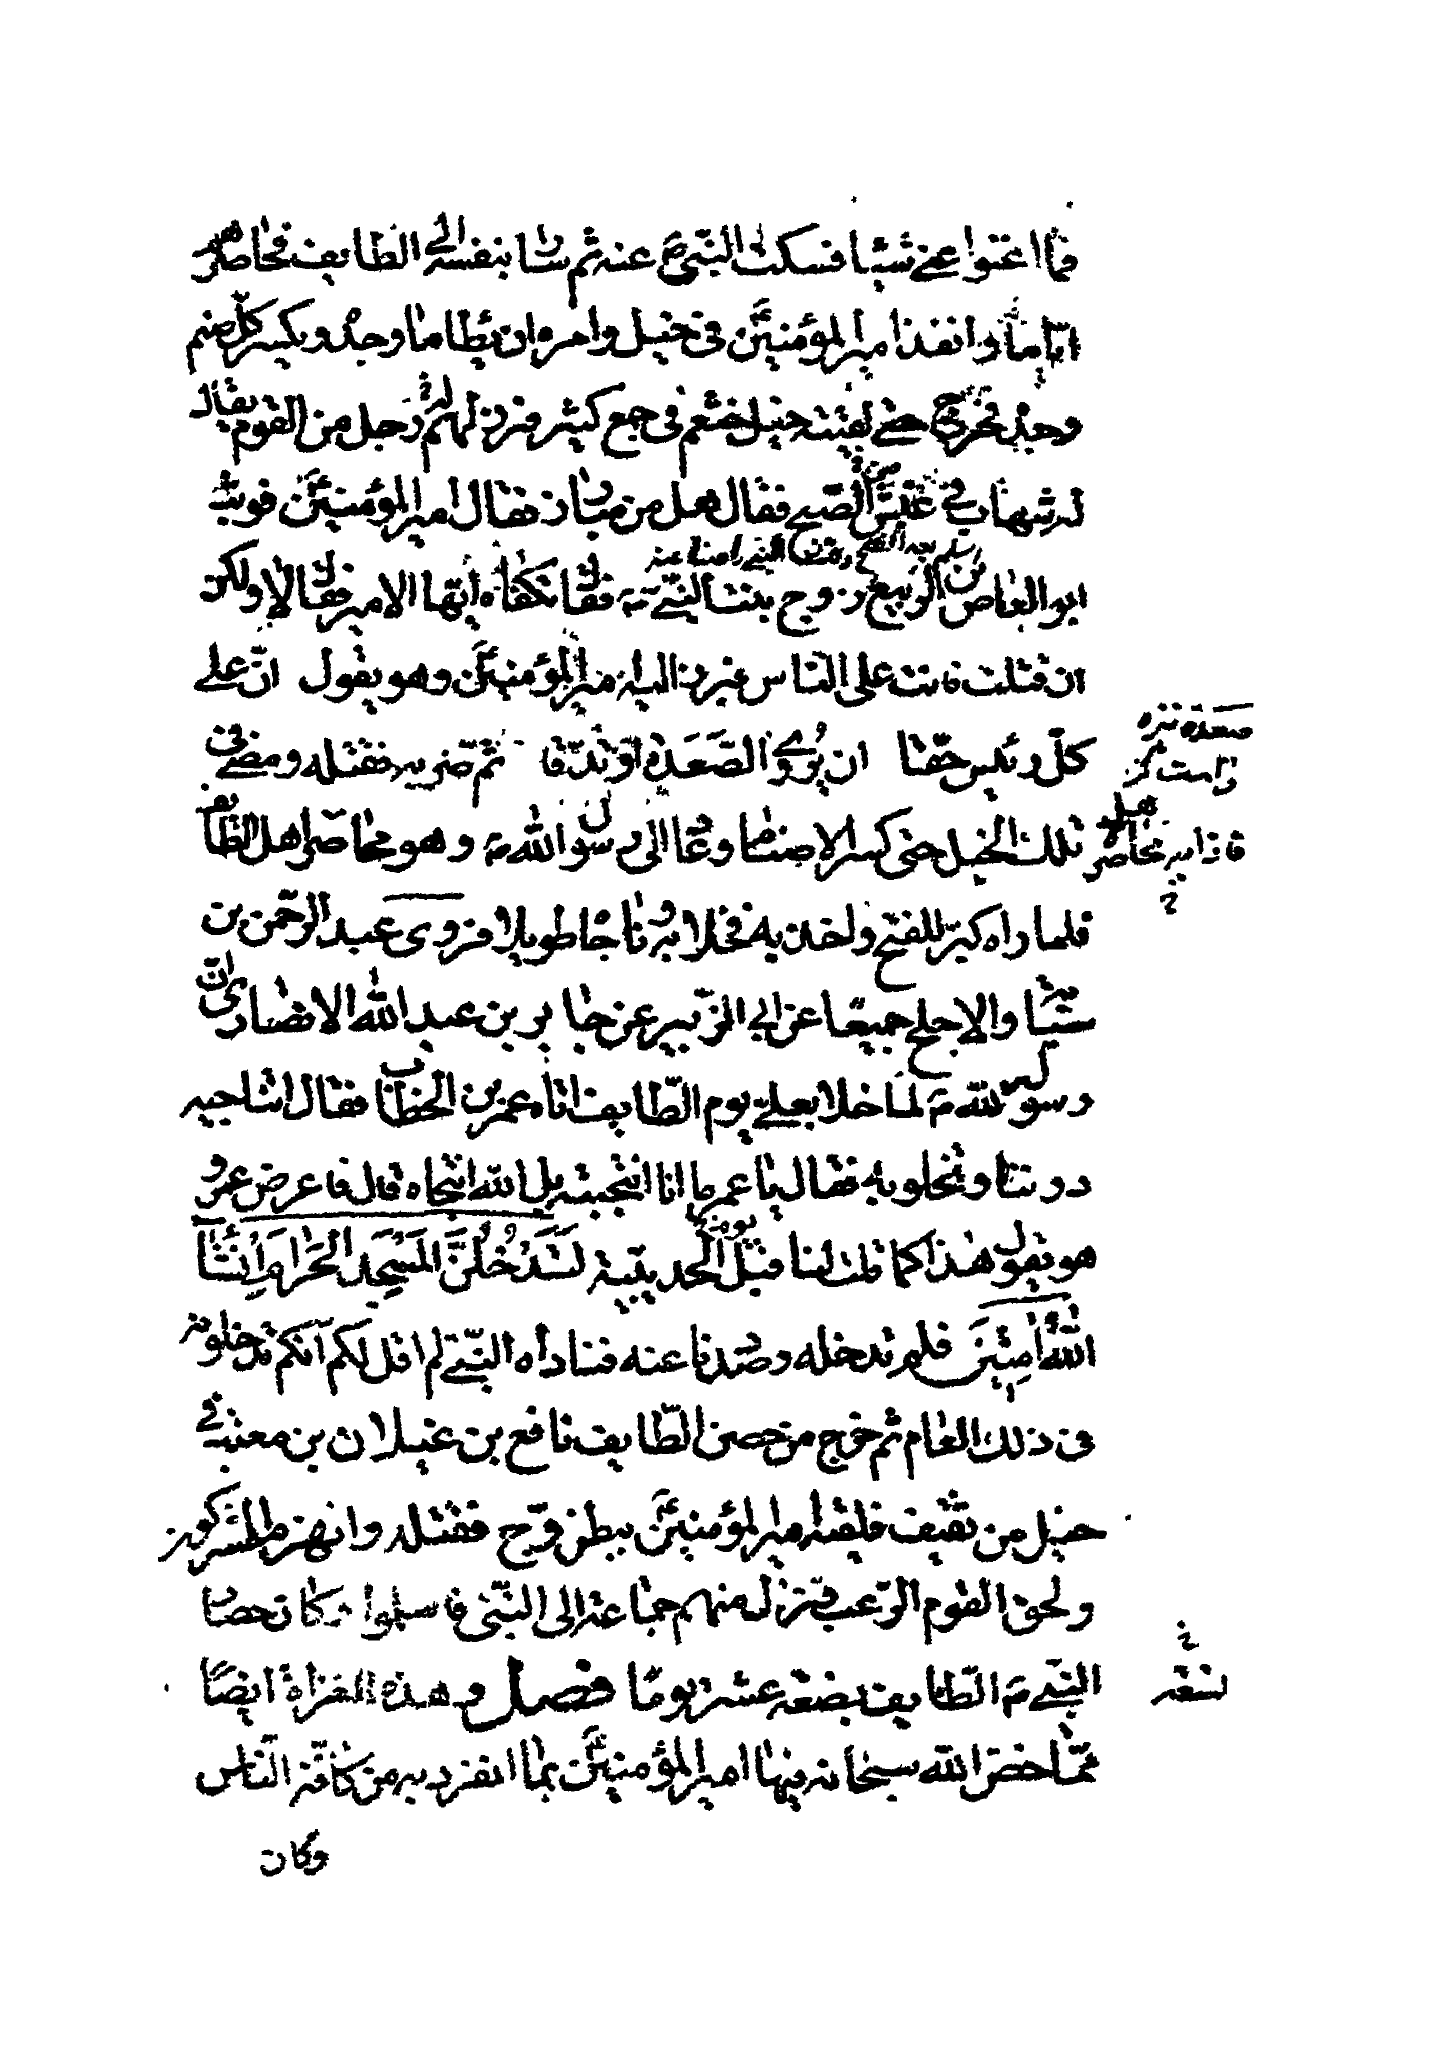 فما اغنوا عني شيئا فسكت النبي ص عنه ثم سار بنفسه الى الطايف فحاصرهم
اياما وانفذ امير المؤمنين في خيل وامره ان يطا ما وجد ويكسر كل صنم
وجده فخرج حتى لقيته خيل خثعم في جمع كثير فبرز لهم رجل من القوم يقال
له شهاب في غلس الصبح فقال هل من مبارز فقال امير المؤمنين فوثب
ابو العاص بن الربيع زوج بنت النبي فقال تكفاه ايها الامير فقال لا ولكن
ان قتلت فانت على الناس فبرز اليه امير المؤمنين وهو يقول ان على
كل رئيس حقا ان يروي الصعدة او تدقا ثم ضربه فقتله ومضى في
صعده نيزه
راست
تلك الخيل حتى كسر الاصنام وعاد الى رسول الله وهو محاصر اهل الطايف
محاصر
فلما راه كبر للفتح واخذ بيده فخلا به وناجاه طويلا فروى عبد الرحمن بن
سيابة والاجلح جميعا عن ابي الزبير عن جابر بن عبد الله الانصاري ان
رسول الله لما خلا بعلي يوم الطايف اتاه عمر بن الخطاب فقال اتناجيه
دوننا وتخلو به فقال يا عمر ما انا انتجيته بل الله انتجاه قال فاعرض عمر و
هو يقول هذا كما قلت لنا قبل الحديبية لَتَدْخُلُنَّ الْمَسْجِدَ الْحَرَامَ اِنْ شَآءَ
اللّٰهُ اٰمِنِينَ فلم ندخله وصددنا عنه فناداه النبي لم اقل لكم انكم تدخلونه
في ذلك العام ثم خرج من حصن الطايف نافع بن غيلان بن معتب في
خيل من ثقيف فلقيه امير المؤمنين ببطن وج فقتله وانهزم المشركون
ولحق القوم الرعب فنزل منهم جماعة الى النبي فاسلموا وكان حصار
النبي الطايف بضعة عشر يوما فصل وهذه الغزاة ايضا
مما خص الله سبحانه فيها امير المؤمنين بما انفرد به من كافة الناس
وكان